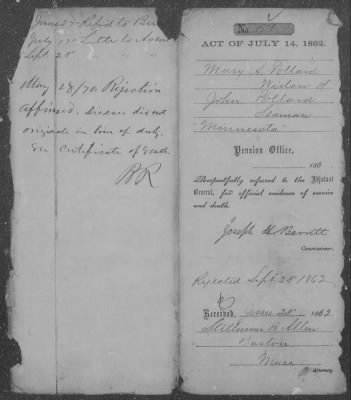 June 27 Refd to
July 17 Letter to
Sept. 25
May 28/70 Rejection
Affirmed, disease did not
originate in line of duty.
See Certificate of death.
No.
ACT OF JULY 14, 1862.
Mary A. Pollard
Widow of
John Pollard
Seaman
"Minnesota"
Pension Office,
186
Respectfully referred to the Adjutant
General, for official evidence of service
and death.
Joseph H. Barrett
Commissioner.
Rejected Sept. 25 1862
Received, June 25 1862
Stillman B. Allen
Boston
Mass
Attorney.